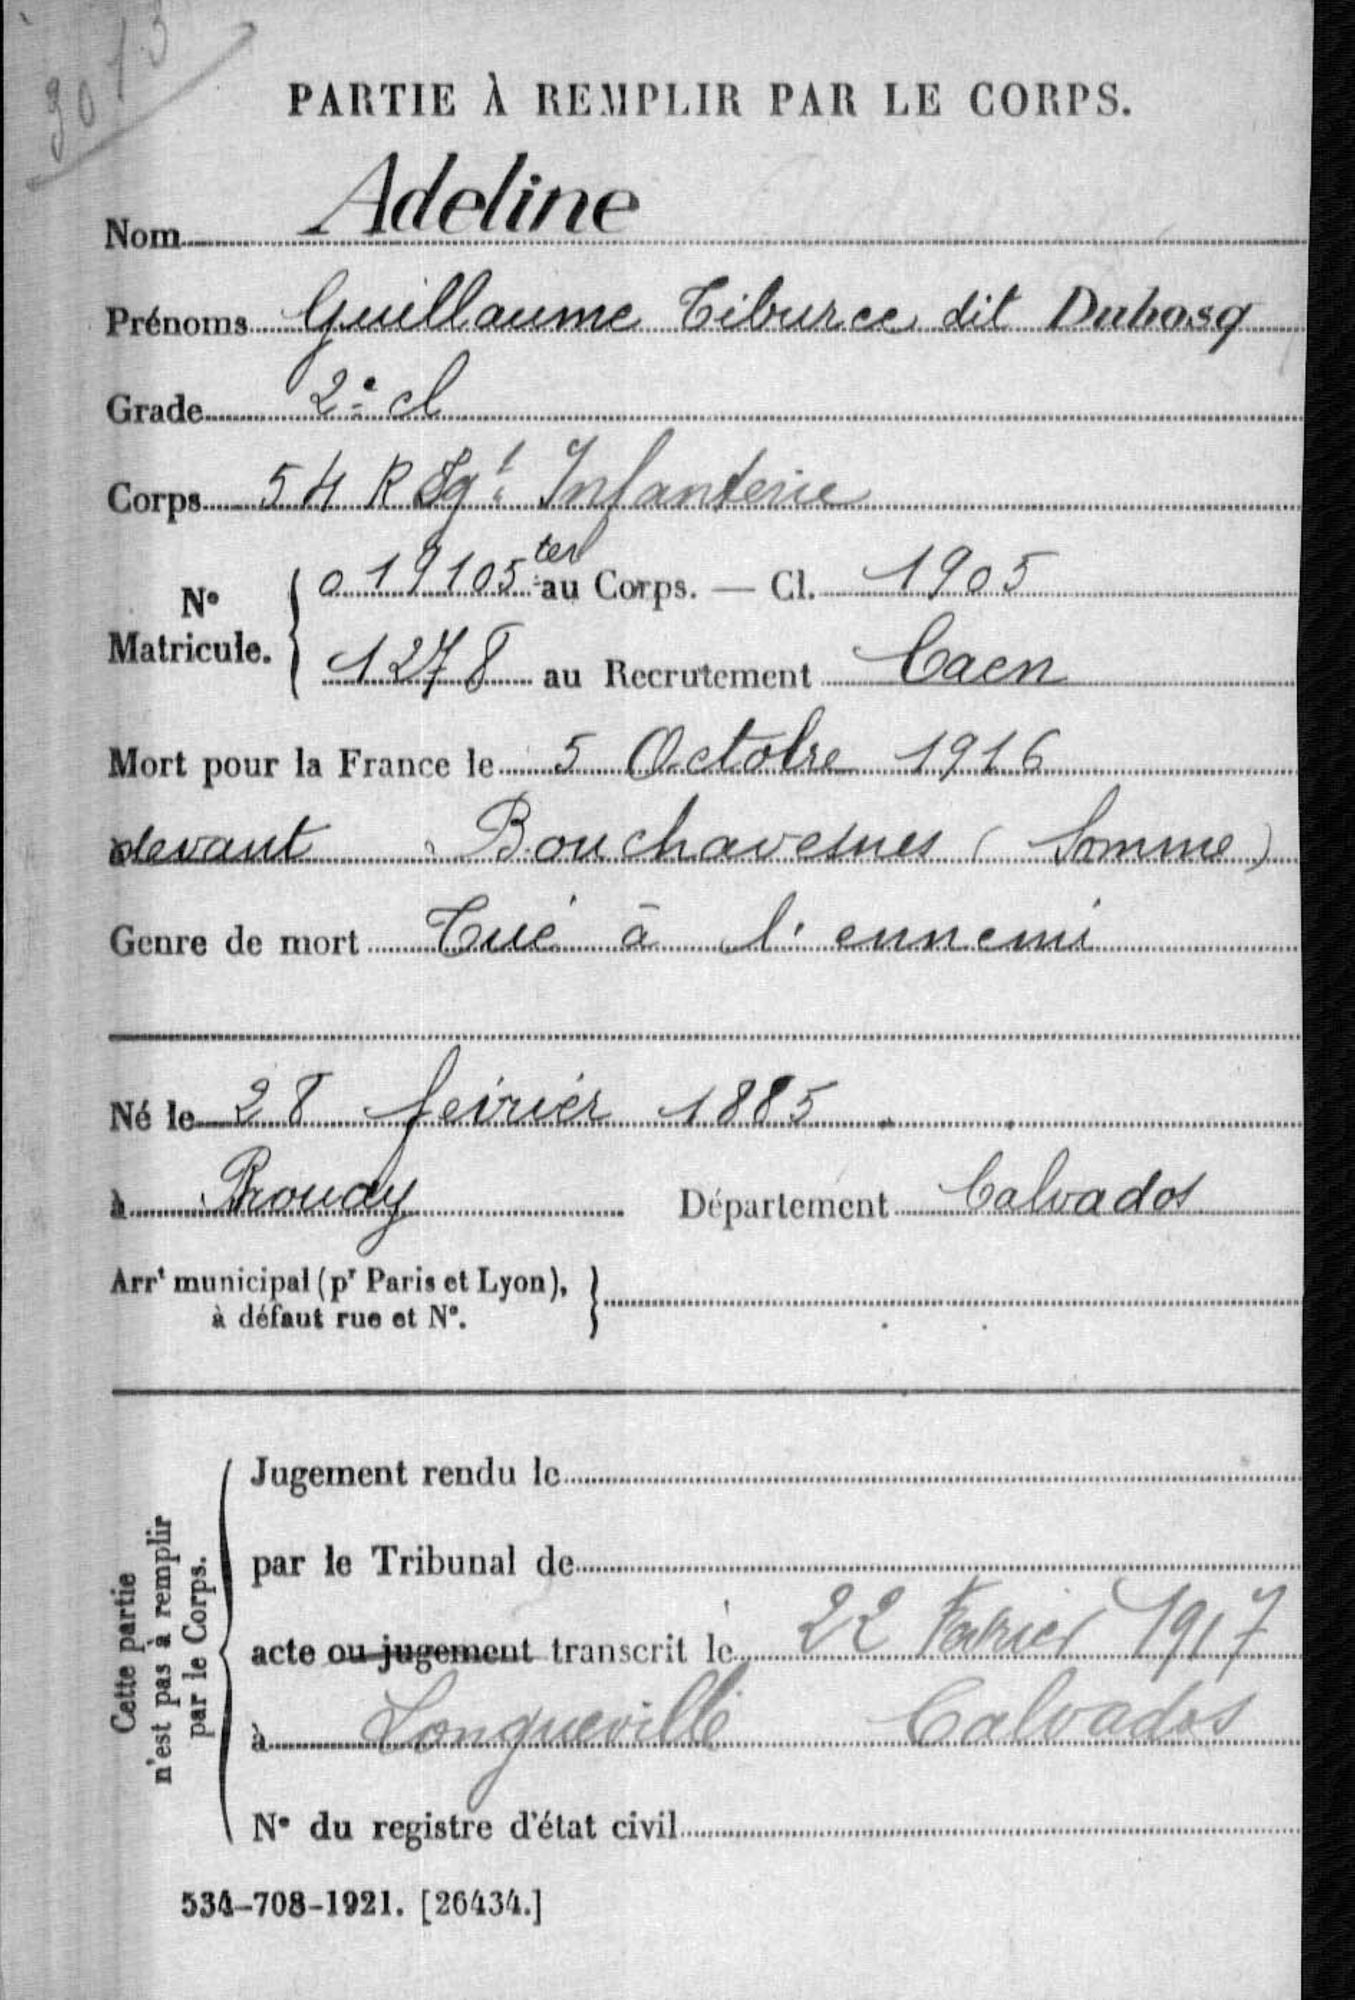 3013
PARTIE À REMPLIR PAR LE CORPS.
Nom Adeline
Prénoms Guillaume Tiburce dit Dubosq
Grade 2e cl
Corps 54 R Igt Infanterie
N° Matricule. { 019105 ter au Corps. — Cl. 1905
1278 au Recrutement Caen
Mort pour la France le 5 Octobre 1916
devant Bouchavesnes (Somme)
Genre de mort Tué à l'ennemi
Né le 28 février 1885
à Rouay Département Calvados
Arrt municipal (pr Paris et Lyon), }
à défaut rue et N°.
Cette partie
n'est pas à remplir
par le Corps.
Jugement rendu le
par le Tribunal de
acte ou jugement transcrit le 22 Fevrier 1917
à Longueville Calvados
N° du registre d'état civil
534-708-1921. [26434.]